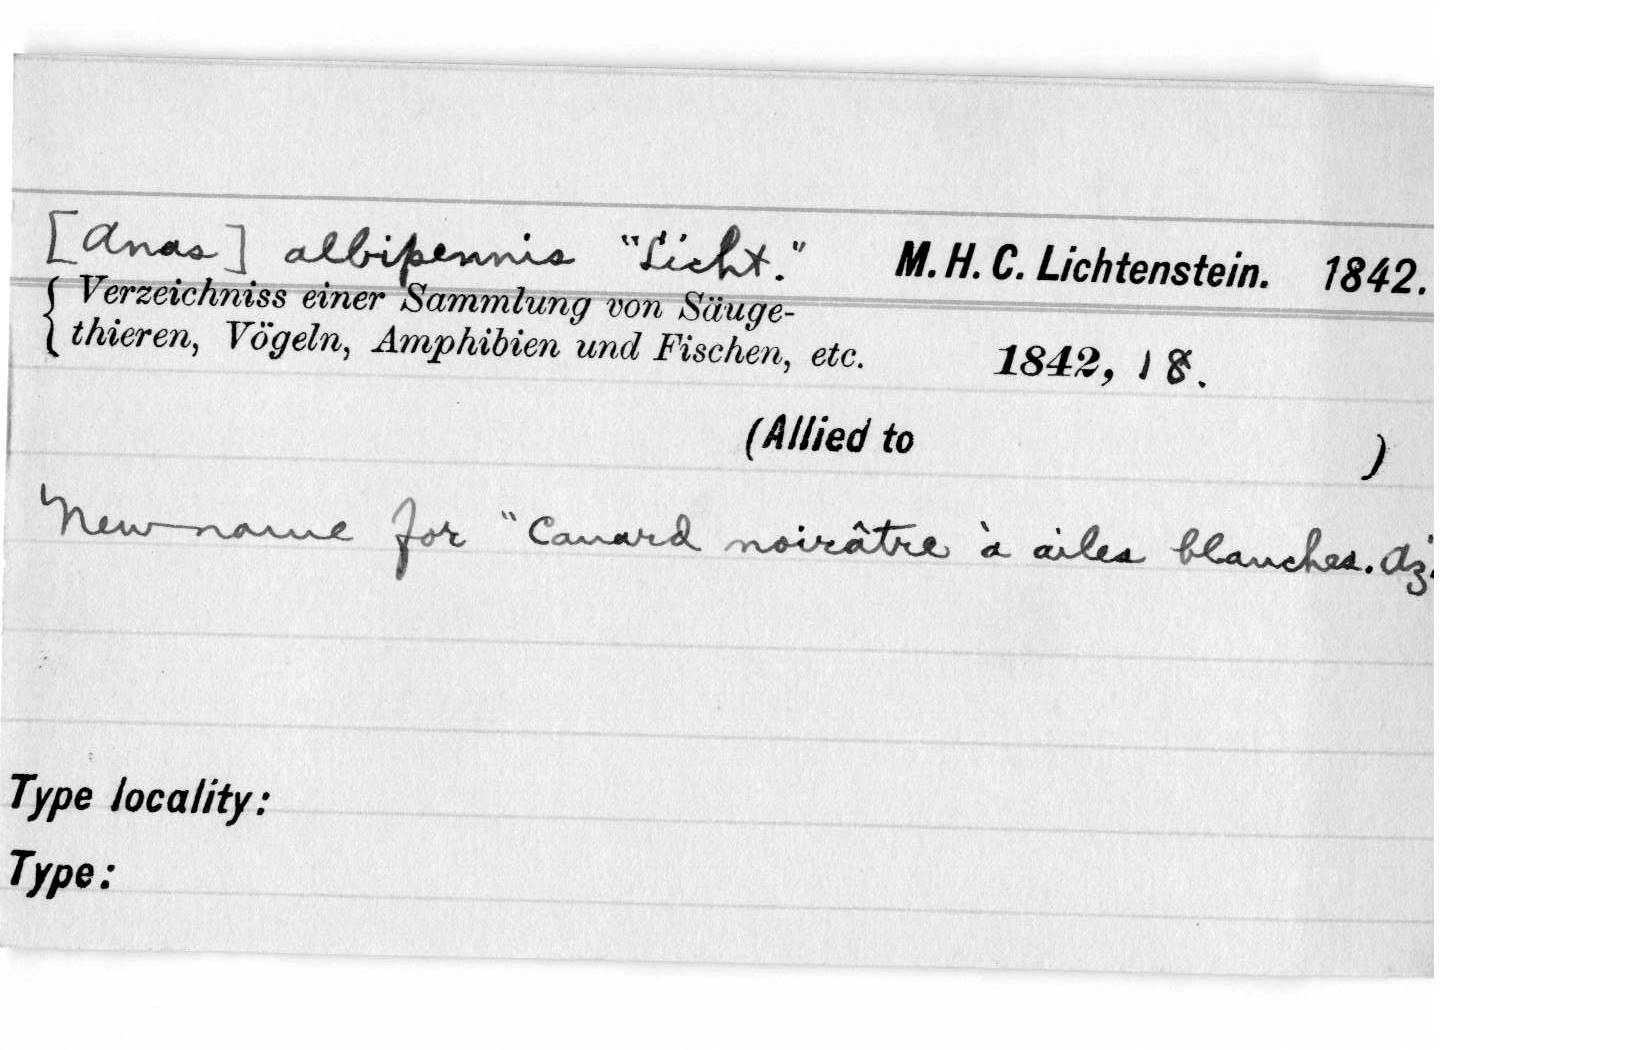 [Anas] albipennis "Licht." M. H. C. Lichtenstein. 1842.
Verzeichniss einer Sammlung von Säuge-
thieren, Vögeln, Amphibien und Fischen, etc. 1842, 18.
(Allied to )
New name for "Canard noirâtre à ailes blanches. Az."
Type locality:
Type: